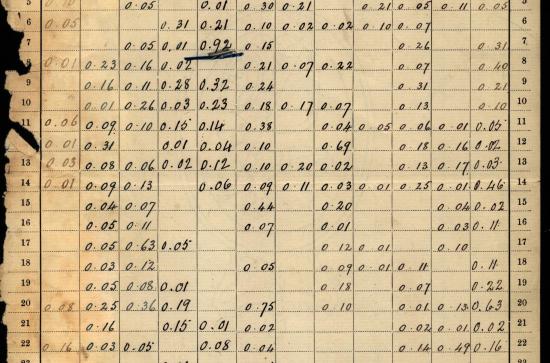 5 0.10 0.05 0.01 0.30 0.21 0.21 0.05 0.11 0.05 5
6 0.05 0.31 0.21 0.10 0.02 0.02 0.10 0.07 6
7 0.05 0.01 0.92 0.15 0.26 0.31 7
8 0.01 0.23 0.16 0.02 0.21 0.07 0.22 0.07 0.40 8
9 0.16 0.11 0.28 0.32 0.24 0.31 0.21 9
10 0.01 0.26 0.03 0.23 0.18 0.17 0.07 0.13 0.10 10
11 0.06 0.09 0.10 0.15 0.14 0.38 0.04 0.05 0.06 0.01 0.05 11
12 0.01 0.31 0.01 0.04 0.10 0.69 0.18 0.16 0.02 12
13 0.03 0.08 0.06 0.02 0.12 0.10 0.20 0.02 0.13 0.17 0.03 13
14 0.01 0.09 0.13 0.06 0.09 0.11 0.03 0.01 0.25 0.01 0.46 14
15 0.04 0.07 0.44 0.20 0.04 0.02 15
16 0.05 0.11 0.07 0.01 0.03 0.11 16
17 0.05 0.63 0.05 0.12 0.01 0.10 17
18 0.03 0.12 0.05 0.09 0.01 0.11 0.11 18
19 0.05 0.08 0.01 0.18 0.07 0.22 19
20 0.08 0.25 0.36 0.19 0.75 0.10 0.01 0.13 0.63 20
21 0.16 0.15 0.01 0.02 0.02 0.01 0.02 21
22 0.16 0.03 0.05 0.08 0.04 0.14 0.49 0.16 22